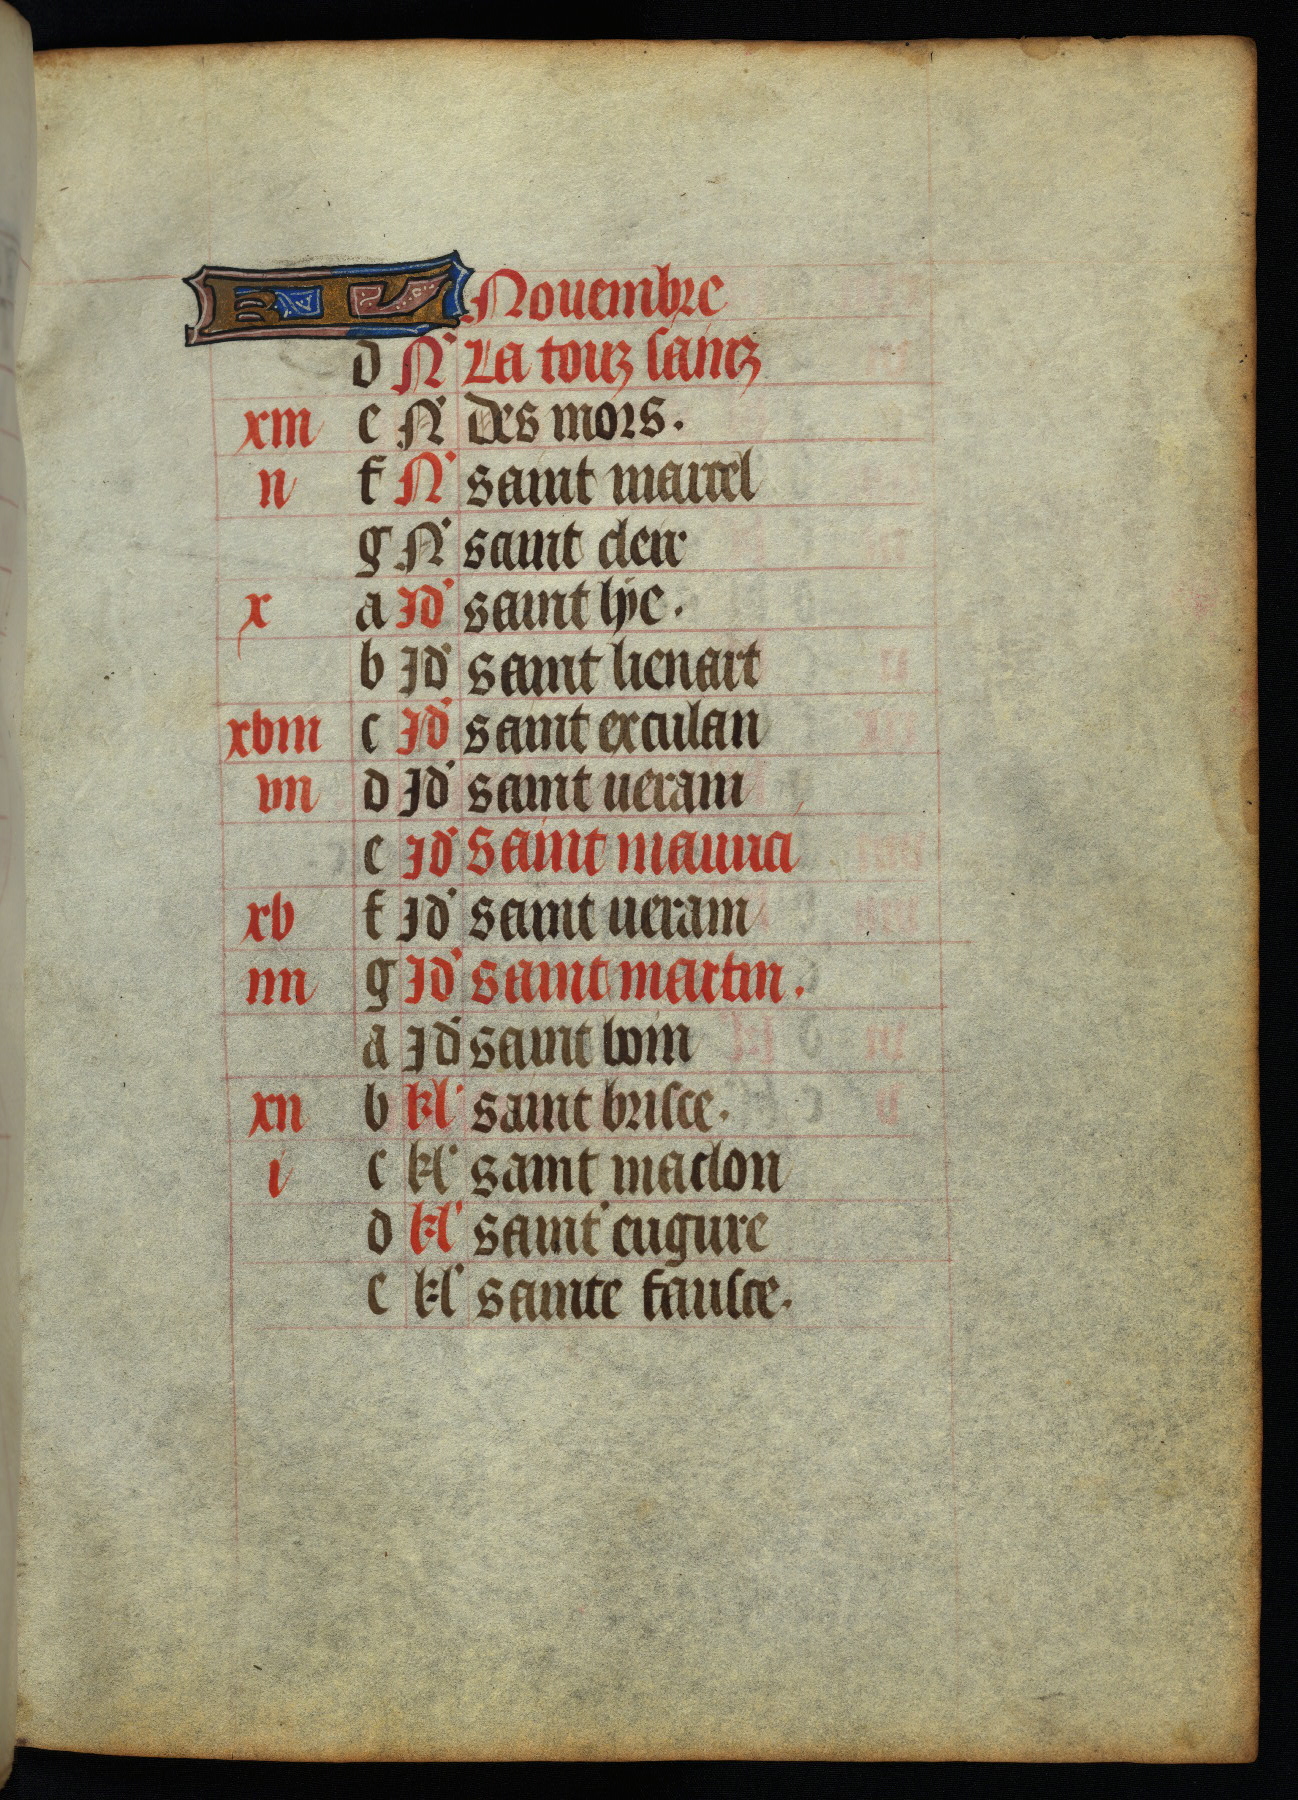 KL Nouembre
d N La touz sainz
xiii e N Des mors.
ii f N saint marcel
g N saint cleir
x a Id saint lye.
b Id saint lienart
xviii c Id saint exculan
vii d Id saint uerain
e Id saint maurici
xv f Id saint uerain
iiii g Id saint martin.
a Id saint boin
xii b kl saint brisce.
i c kl saint maclon
d kl saint eugure
e kl sainte fausce.